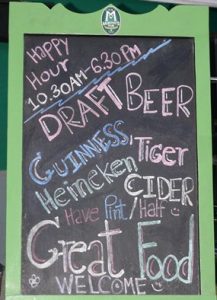 M
HAPPY
HOUR
10.30AM-6.30PM
DRAFT BEER
GUINNESS, TIGER
Heineken CIDER
Have Pint/Half
Great Food
WELCOME